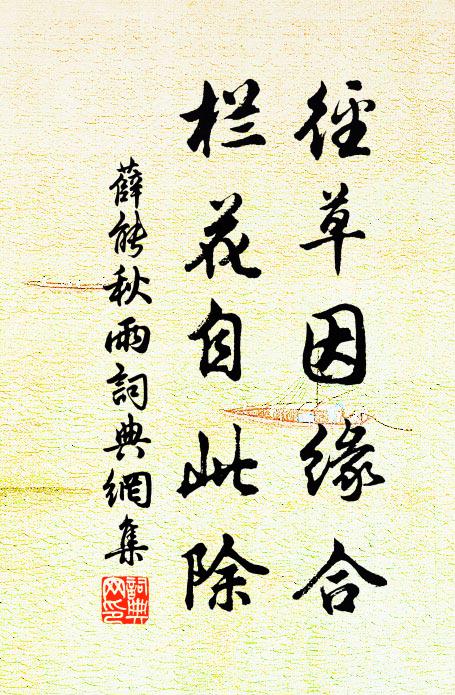 徑草因緣合
栏花自此除
薛能秋雨詞典網集
詞典網印